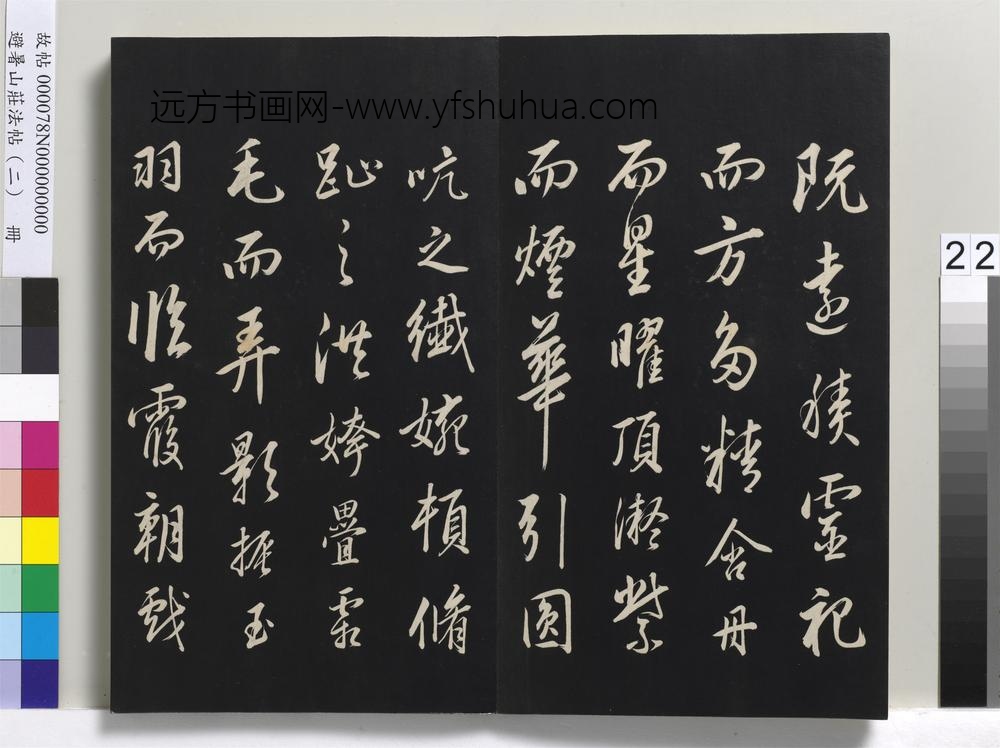 既遠積靈祀
而方多精含丹
而星曜頂凝紫
而煙華引圓
吭之纖婉頓脩
趾之洪姱疊霜
毛而弄影振玉
羽而臨霞朝戲
远方书画网-www.yfshuhua.com
故帖 000078N000000000
避暑山莊法帖（二） 冊
22